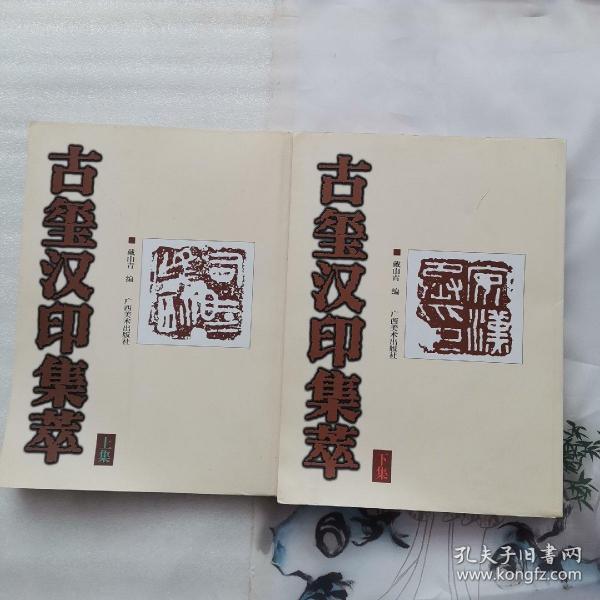 古玺汉印集萃
上集
戴山青 编
广西美术出版社
古玺汉印集萃
下集
戴山青 编
广西美术出版社
孔夫子旧书网
www.kongfz.com